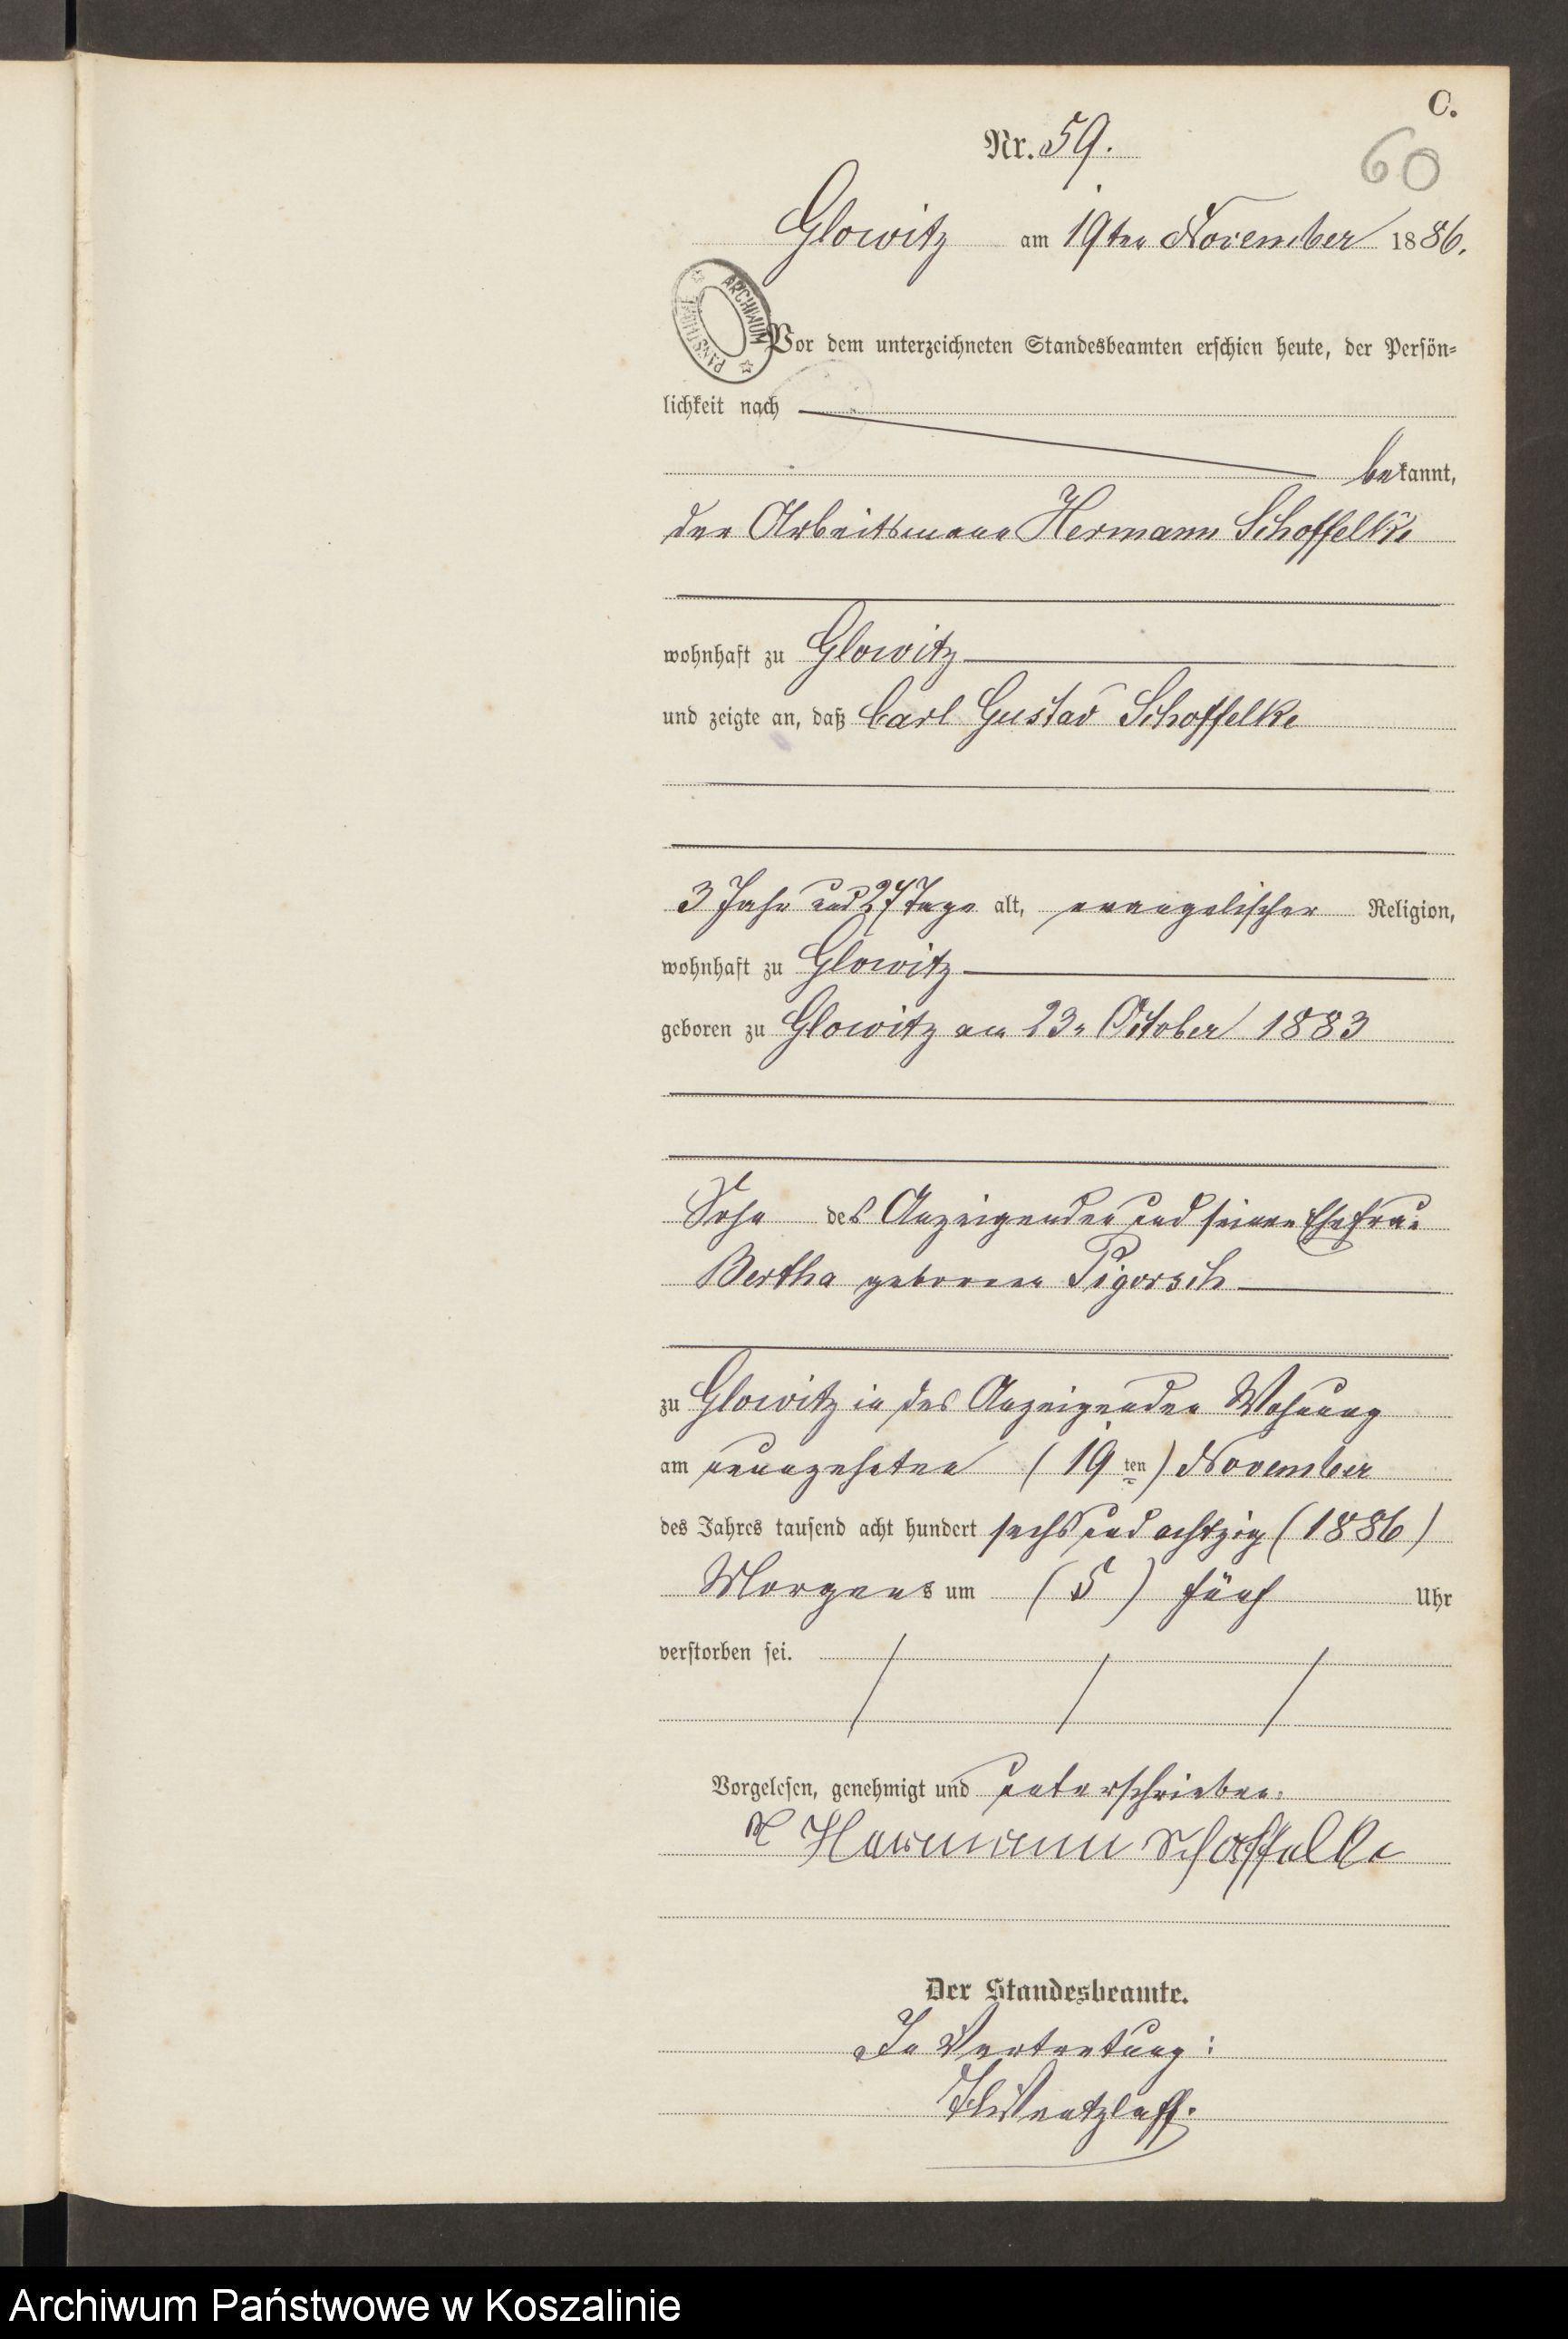 C.
Nr. 59.
60
Glowitz am 19ten November 1886.
ARCHIWUM PAŃSTWOWE
Vor dem unterzeichneten Standesbeamten erschien heute, der Persön-
lichkeit nach
bekannt,
der Arbeitsmann Hermann Schoffelke
wohnhaft zu Glowitz
und zeigte an, daß Carl Gustav Schoffelke
3 Jahr und 27 Tage alt, evangelischer Religion,
wohnhaft zu Glowitz
geboren zu Glowitz am 23n October 1883
Sohn des Anzeigenden und seiner Ehefrau
Bertha geborenen Pigorsch
zu Glowitz in des Anzeigenden Wohnung
am neunzehnten (19ten) November
des Jahres tausend acht hundert sechs und achtzig (1886)
Morgens um (5) fünf Uhr
verstorben sei.
Vorgelesen, genehmigt und unterschrieben.
Hermann Schoffelke
Der Standesbeamte.
In Vertretung:
Wentzlaff.
Archiwum Państwowe w Koszalinie